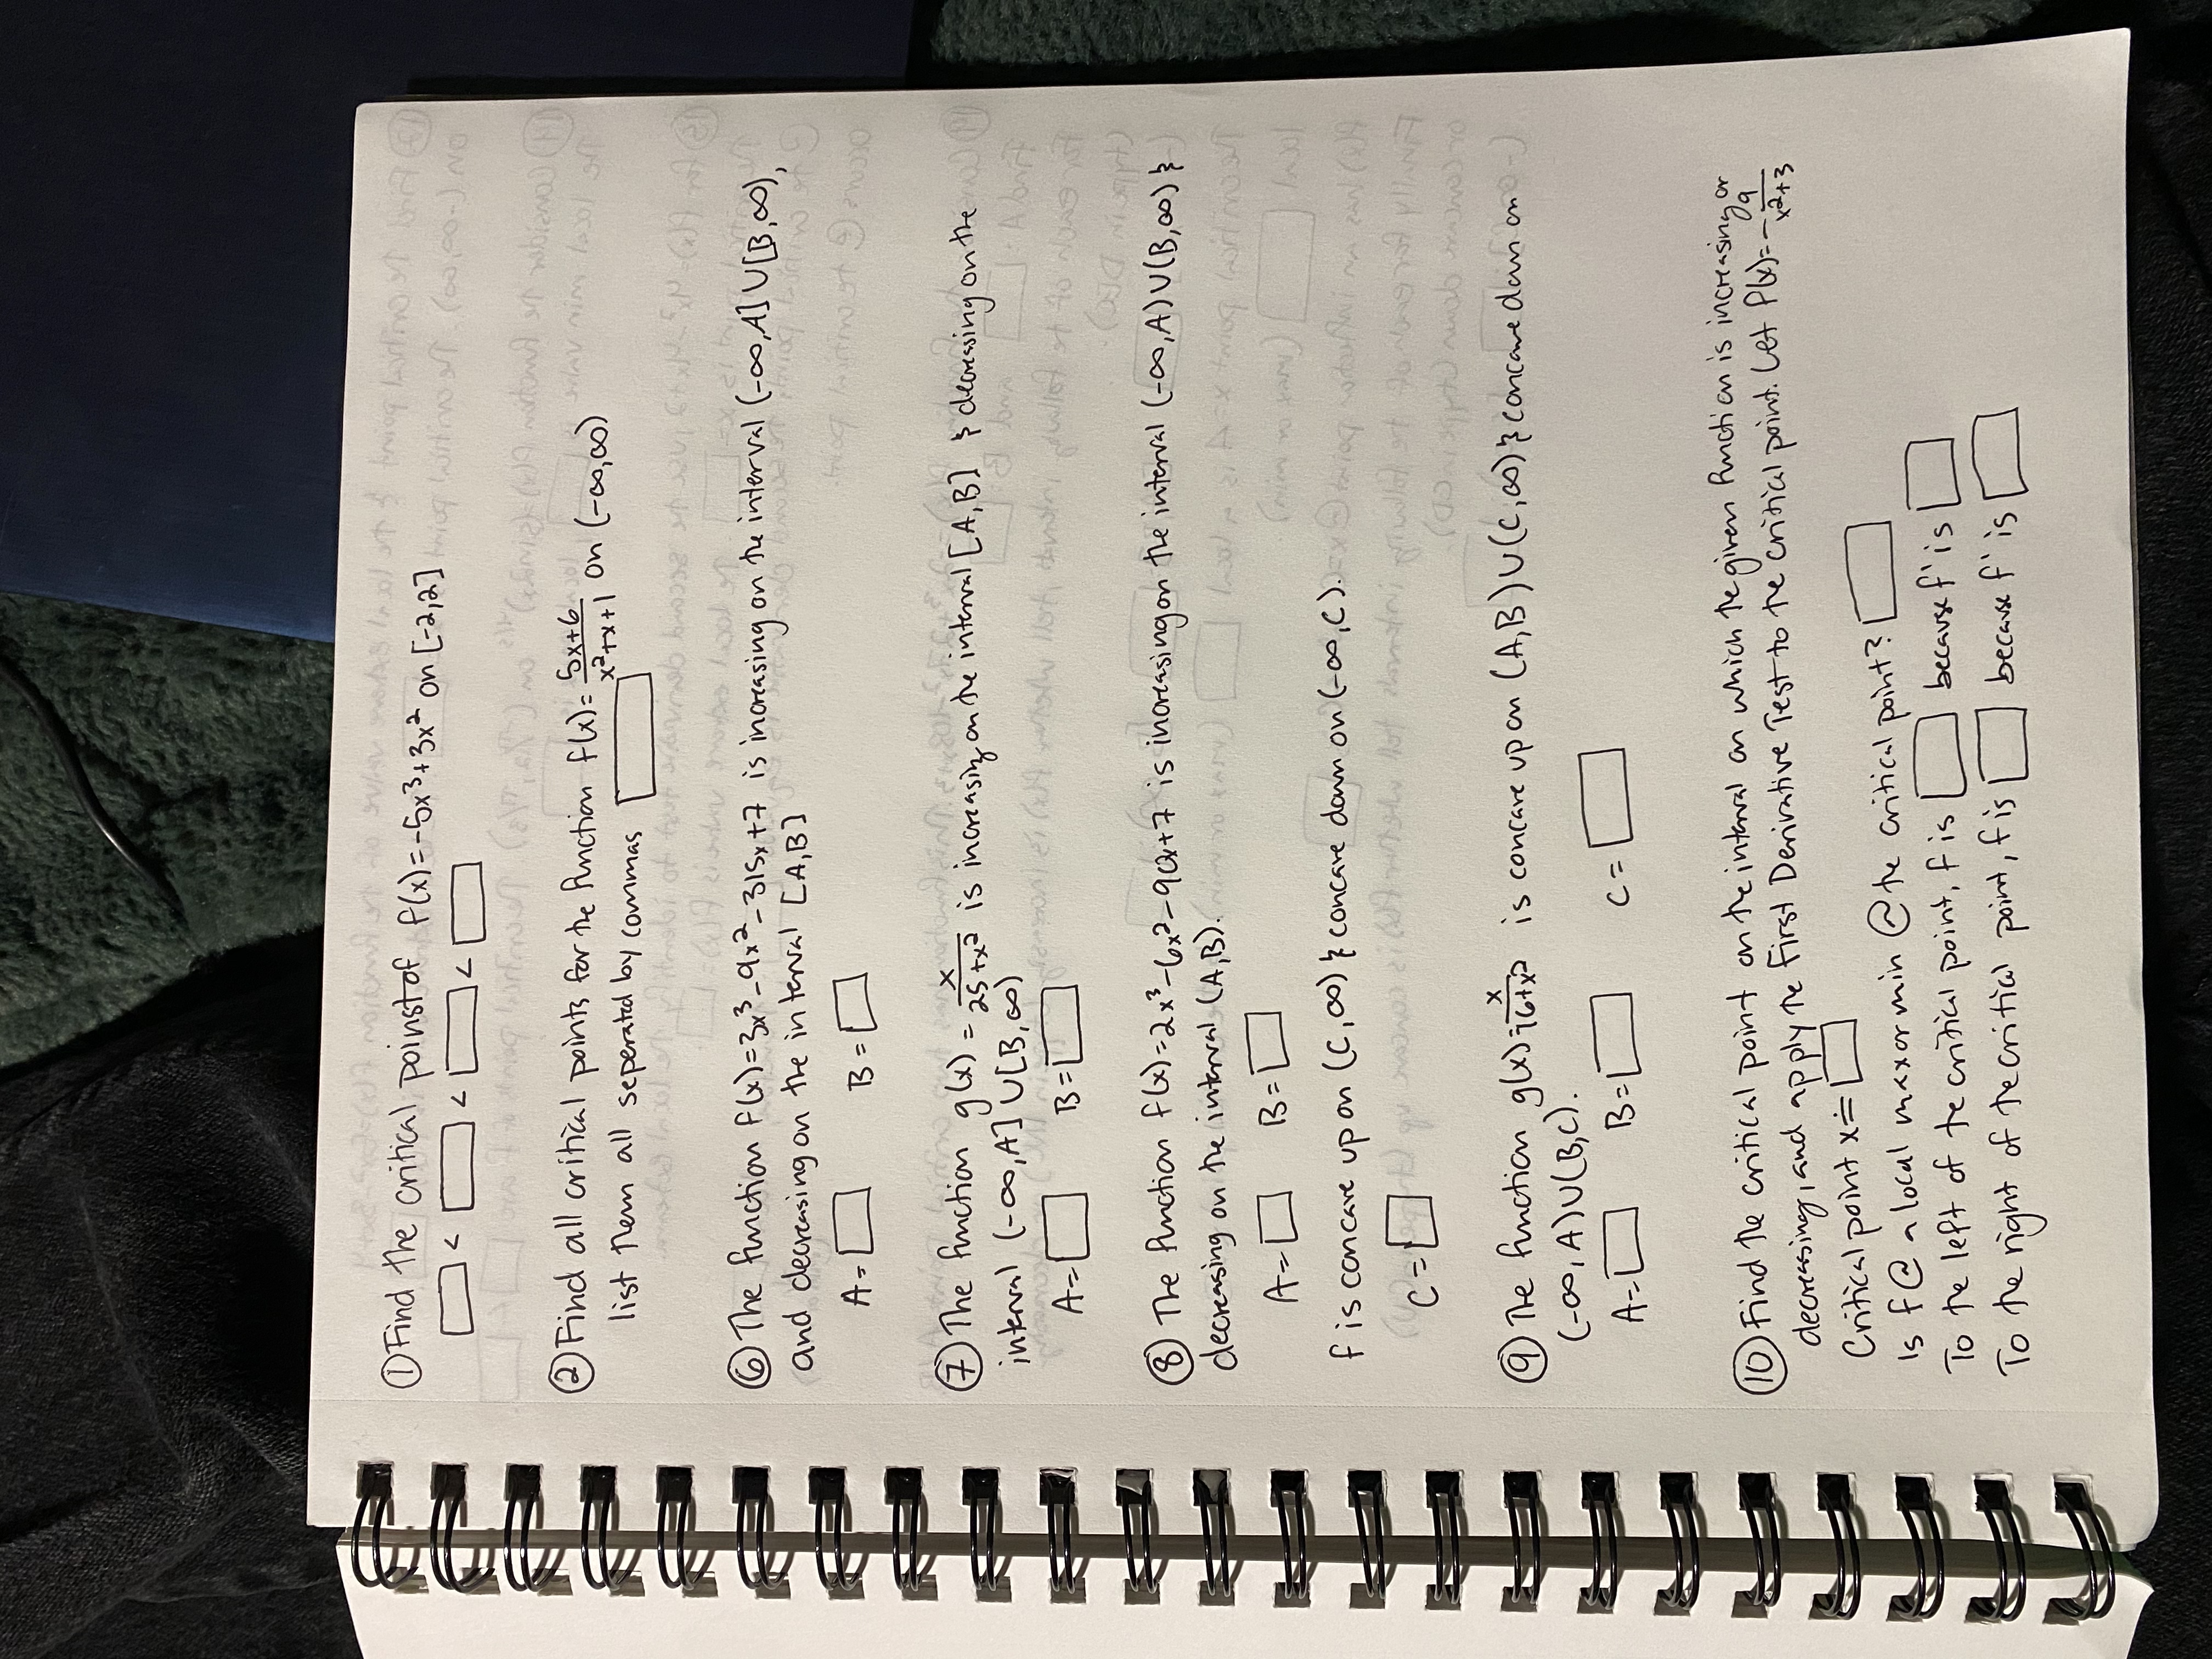 ① Find the critical poinst of f(x)=-5x³+3x² on [-2,2]
□ < □ < □ < □
② Find all critical points for the function f(x)= (5x+6)/(x²+x+1) on (-∞,∞)
list them all seperated by commas □
⑥ The function f(x)=3x³-9x²-315x+7 is increasing on the interval (-∞,A]∪[B,∞),
and decreasing on the interval [A,B]
A=□ B=□
⑦ The function g(x) = x/(25+x²) is increasing on the interval [A,B] & decreasing on the
interval (-∞,A]∪[B,∞)
A=□ B=□
⑧ The function f(x)=2x³-6x²-90x+7 is increasing on the interval (-∞,A)∪(B,∞) &
decreasing on the interval (A,B).
A=□ B=□
f is concave up on (C,∞) & concave down on (-∞,C).
C=□
⑨ The function g(x)= x/(16+x²) is concave up on (A,B)∪(C,∞) & concave down on
(-∞,A)∪(B,C).
A=□ B=□ C=□
⑩ Find the critical point on the interval on which the given function is increasing or
decreasing, and apply the First Derivative Test to the critical point. Let f(x)=- 9/(x²+3)
Critical point x=□
Is f @ a local max or min @ the critical point? □
To the left of the critical point, f is □ because f' is □
To the right of the critical point, f is □ because f' is □